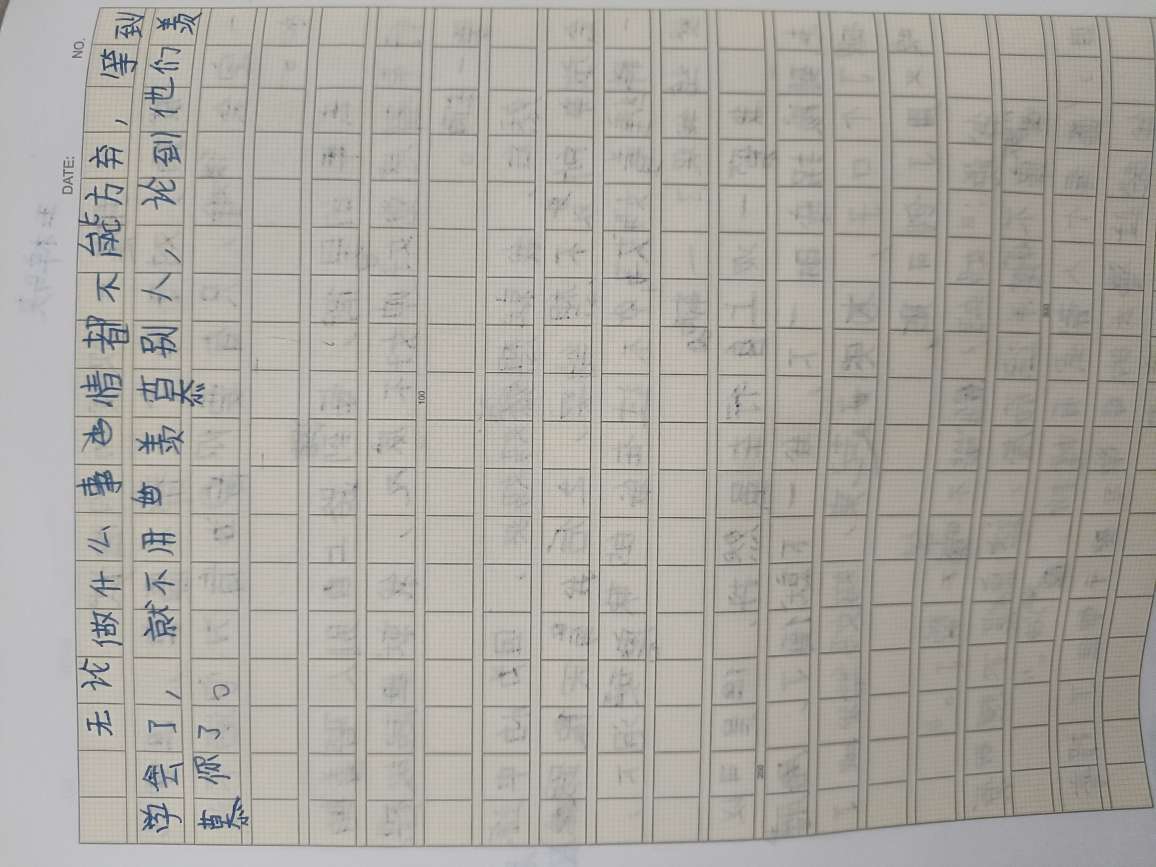 NO.
DATE:
无论做什么事情都不能方弃，等到
学会了，就不用羡慕别人，论到他们羡
慕你了。
100
200
300